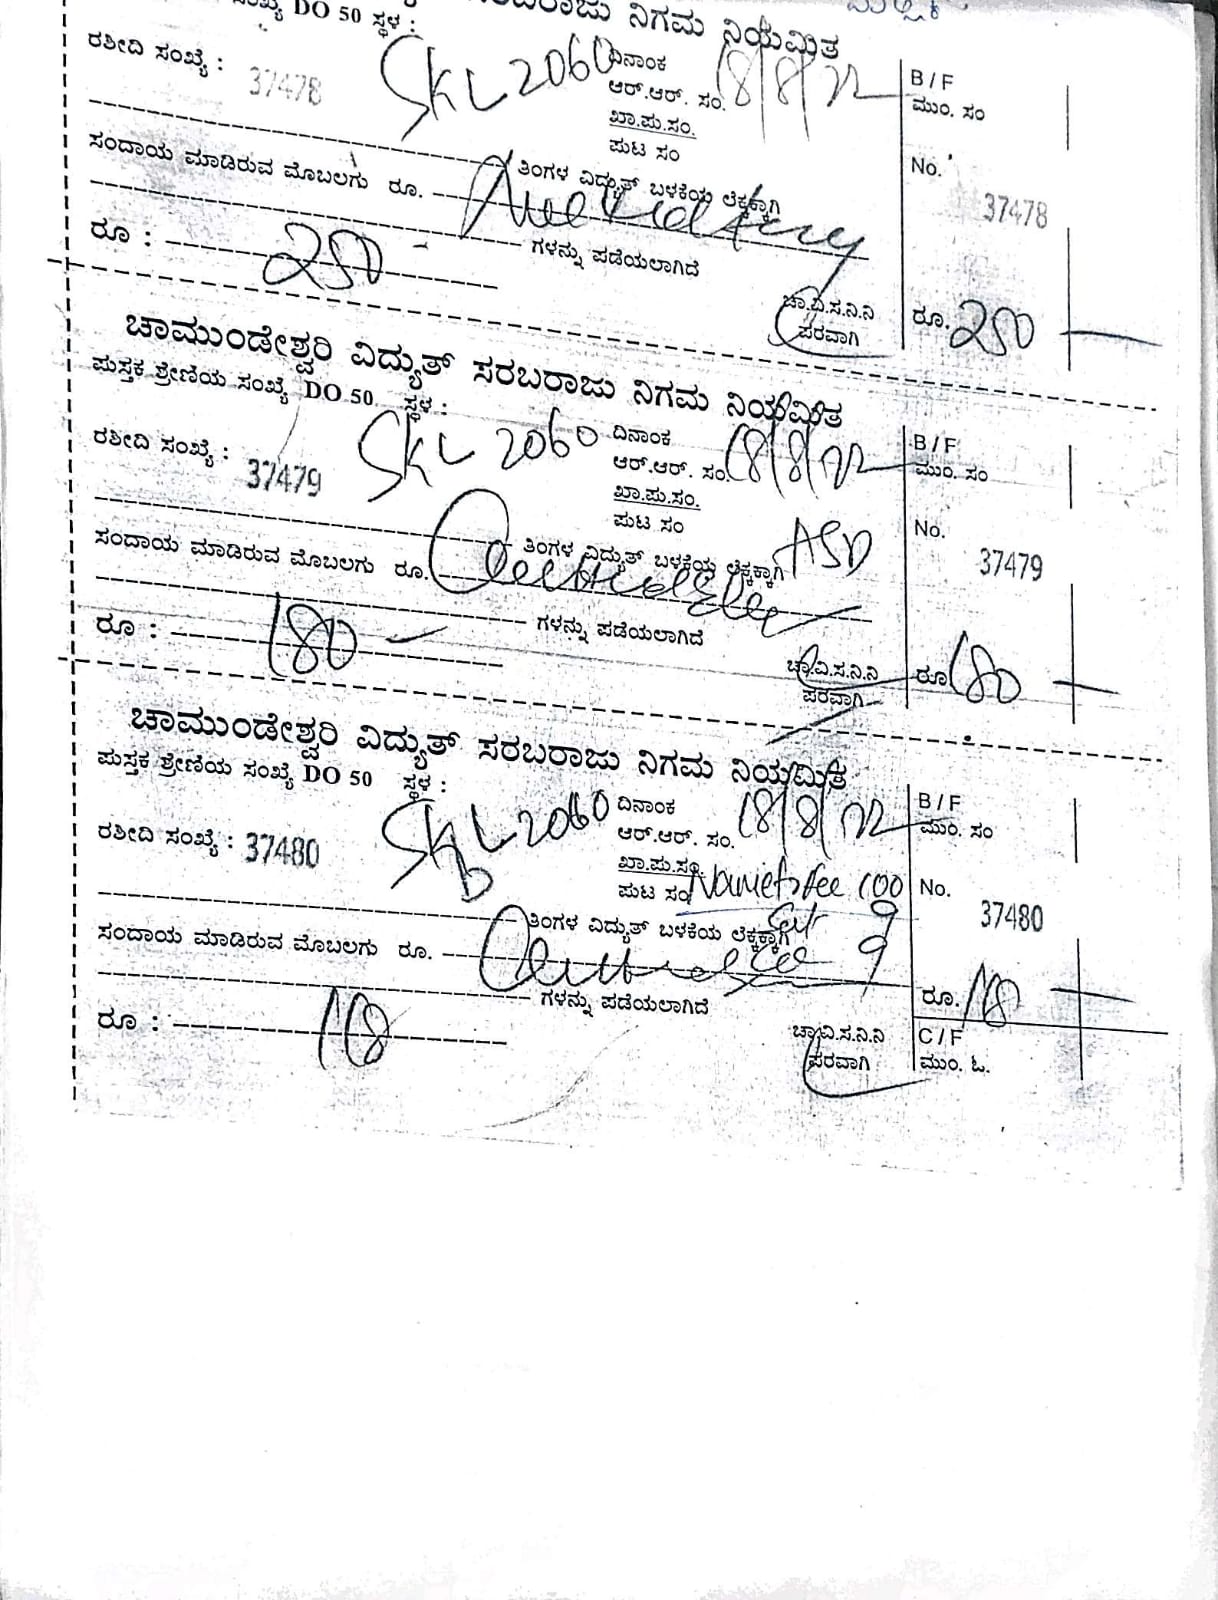 DO 50 ಸ್ಥಳ :
ಸರಬರಾಜು ನಿಗಮ ನಿಯಮಿತ
ರಶೀದಿ ಸಂಖ್ಯೆ : 37478 SKL 2060 ದಿನಾಂಕ 18/8/22 B / F
ಆರ್.ಆರ್. ಸಂ. ಮುಂ. ಸಂ
ಖಾ.ಪು.ಸಂ.
ಪುಟ ಸಂ No. 37478
ಸಂದಾಯ ಮಾಡಿರುವ ಮೊಬಲಗು ರೂ. ತಿಂಗಳ ವಿದ್ಯುತ್ ಬಳಕೆಯ ಲೆಕ್ಕಕ್ಕಾಗಿ
ಗಳನ್ನು ಪಡೆಯಲಾಗಿದೆ
ರೂ : 250 ಚಾ.ವಿ.ಸ.ನಿ.ನಿ ರೂ. 250
ಪರವಾಗಿ
ಚಾಮುಂಡೇಶ್ವರಿ ವಿದ್ಯುತ್ ಸರಬರಾಜು ನಿಗಮ ನಿಯಮಿತ
ಪುಸ್ತಕ ಶ್ರೇಣಿಯ ಸಂಖ್ಯೆ DO 50 ಸ್ಥಳ :
ರಶೀದಿ ಸಂಖ್ಯೆ : 37479 SKL 2060 ದಿನಾಂಕ 18/8/22 B / F
ಆರ್.ಆರ್. ಸಂ. ಮುಂ. ಸಂ
ಖಾ.ಪು.ಸಂ.
ಪುಟ ಸಂ ASD No. 37479
ಸಂದಾಯ ಮಾಡಿರುವ ಮೊಬಲಗು ರೂ. ತಿಂಗಳ ವಿದ್ಯುತ್ ಬಳಕೆಯ ಲೆಕ್ಕಕ್ಕಾಗಿ
ಗಳನ್ನು ಪಡೆಯಲಾಗಿದೆ
ರೂ : 180 ಚಾ.ವಿ.ಸ.ನಿ.ನಿ ರೂ 180
ಪರವಾಗಿ
ಚಾಮುಂಡೇಶ್ವರಿ ವಿದ್ಯುತ್ ಸರಬರಾಜು ನಿಗಮ ನಿಯಮಿತ
ಪುಸ್ತಕ ಶ್ರೇಣಿಯ ಸಂಖ್ಯೆ DO 50 ಸ್ಥಳ :
ರಶೀದಿ ಸಂಖ್ಯೆ : 37480 SKL 2060 ದಿನಾಂಕ 18/8/22 B / F
ಆರ್.ಆರ್. ಸಂ. ಮುಂ. ಸಂ
ಖಾ.ಪು.ಸಂ.
ಪುಟ ಸಂ fee 100 No. 37480
ಸಂದಾಯ ಮಾಡಿರುವ ಮೊಬಲಗು ರೂ. ತಿಂಗಳ ವಿದ್ಯುತ್ ಬಳಕೆಯ ಲೆಕ್ಕಕ್ಕಾಗಿ 9
9
ಗಳನ್ನು ಪಡೆಯಲಾಗಿದೆ
ರೂ : 118 ರೂ. 118
ಚಾ.ವಿ.ಸ.ನಿ.ನಿ C / F
ಪರವಾಗಿ ಮುಂ. ಓ.